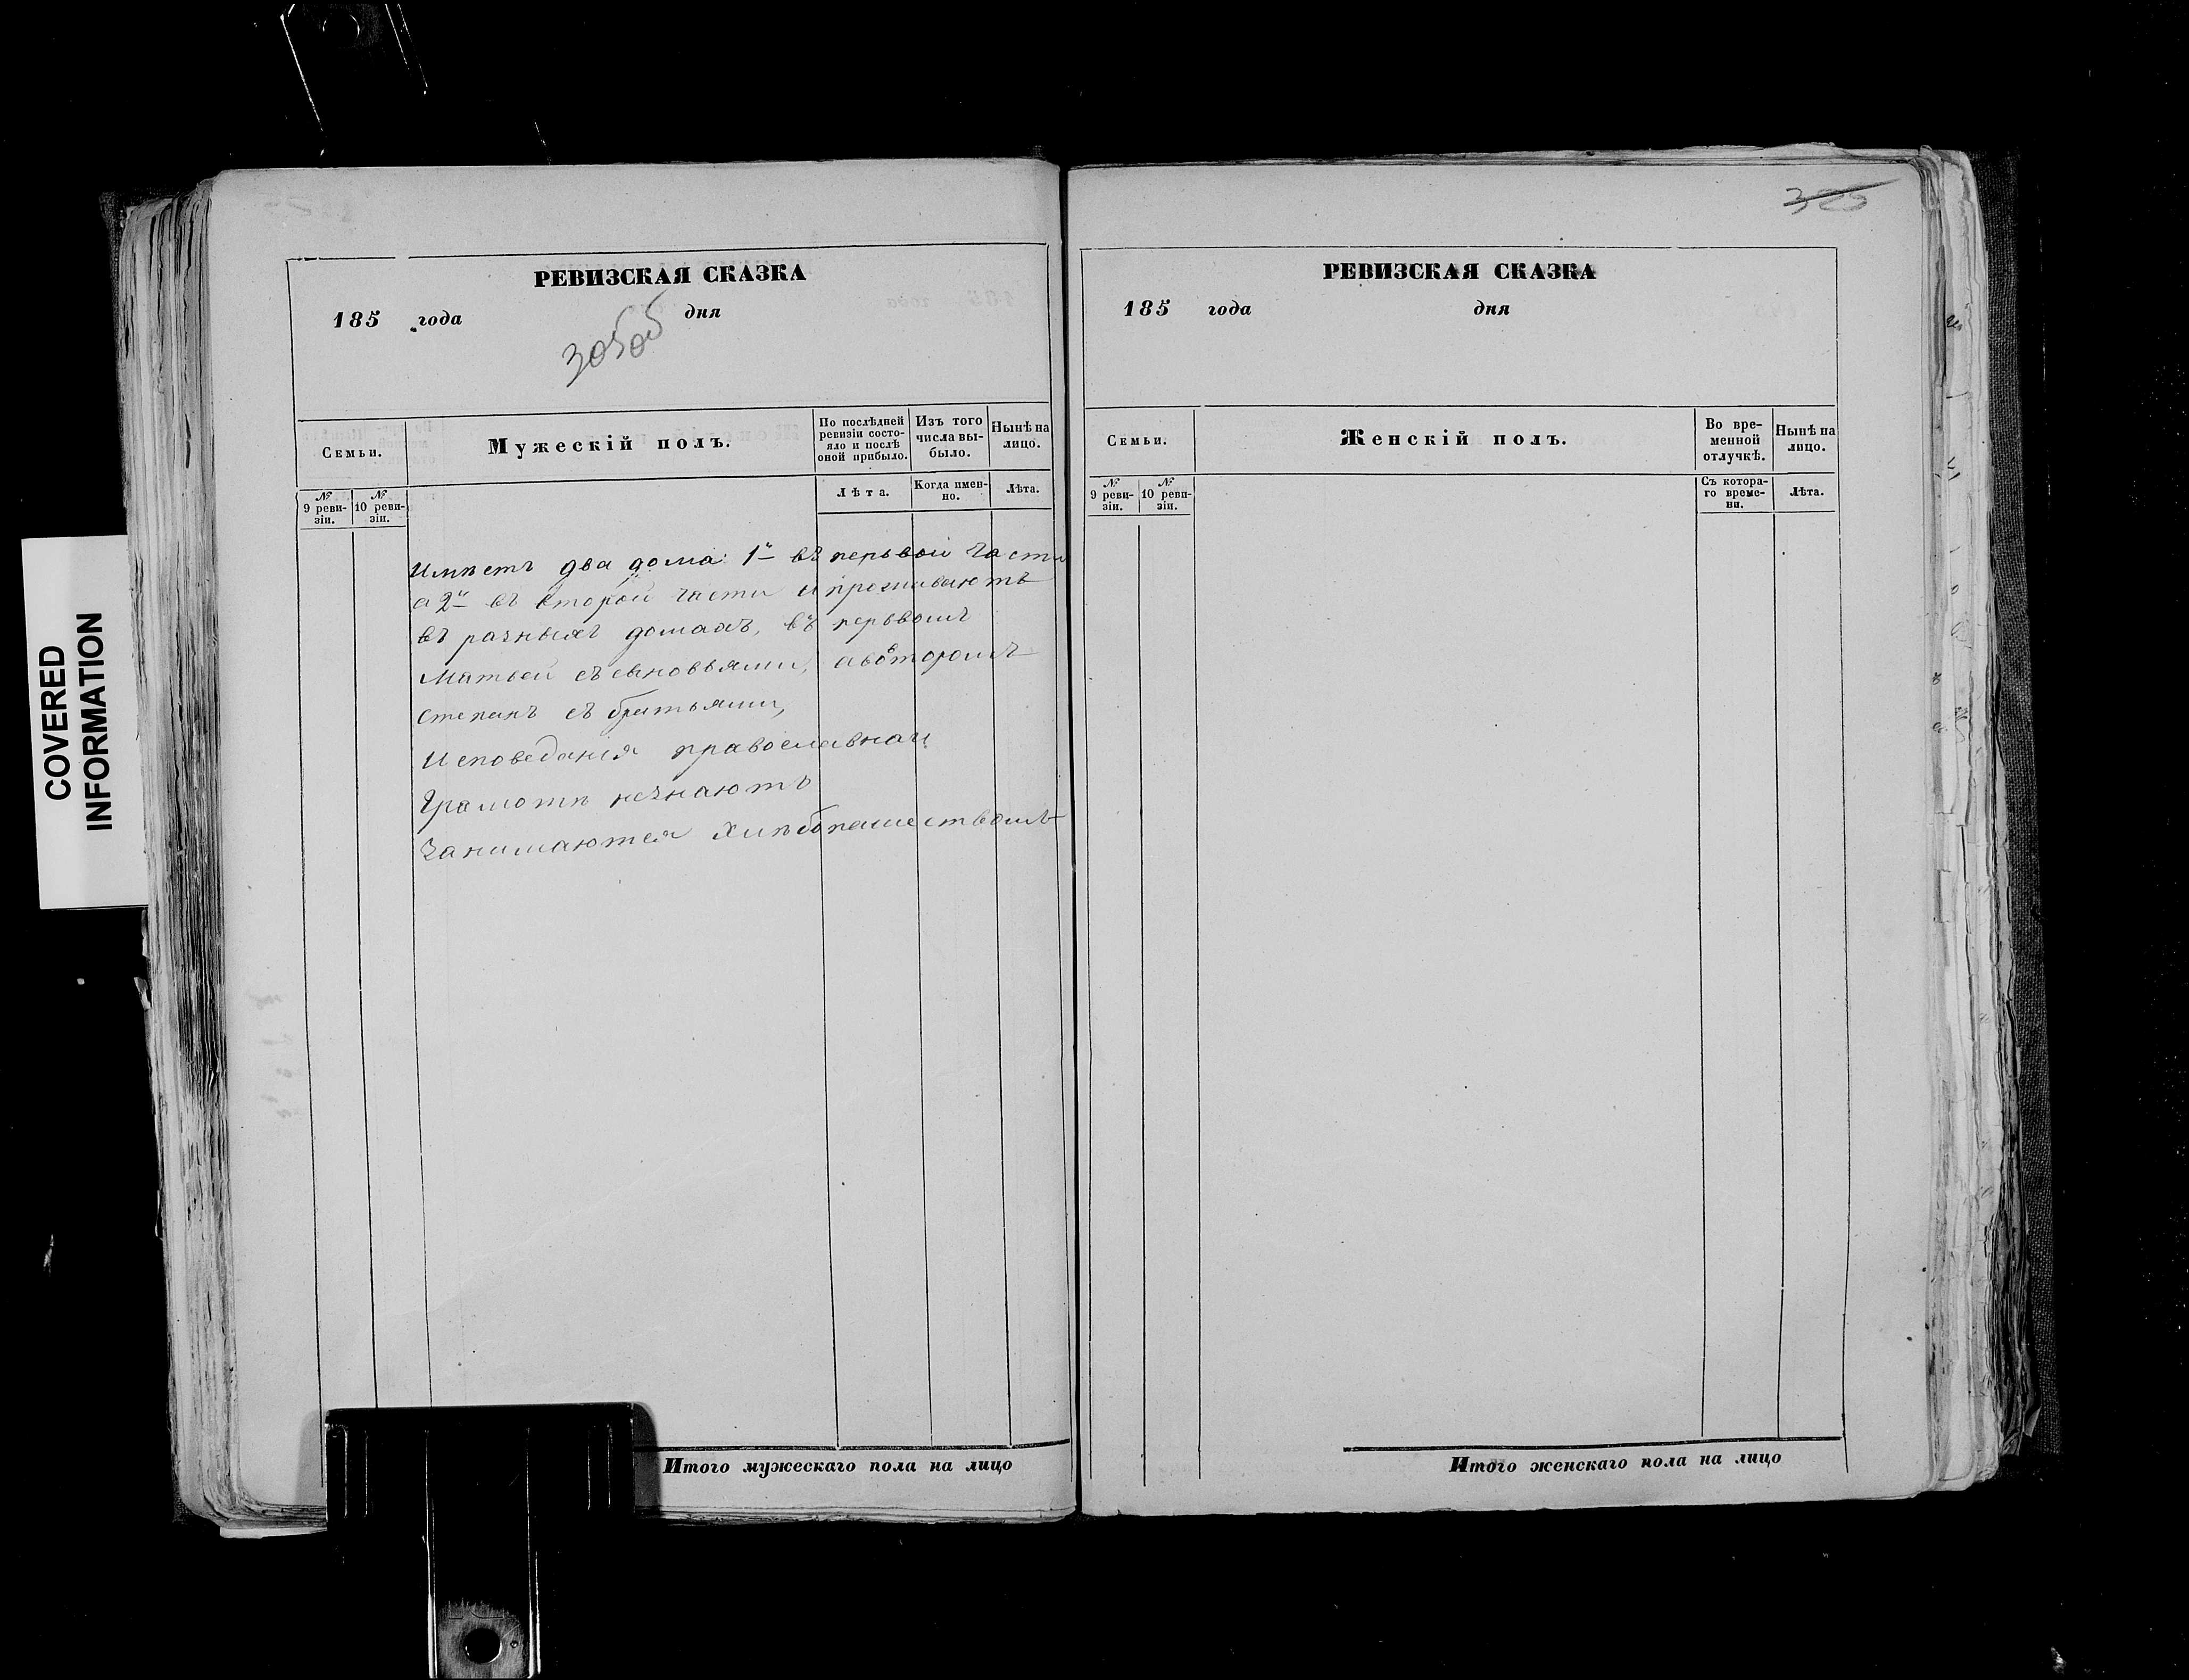 COVERED
INFORMATION
РЕВИЗСКАЯ СКАЗКА
185 года дня
305об
Семьи.
Мужескій полъ.
По послѣдней ревизіи состояло и послѣ оной прибыло.
Изъ того числа выбыло.
Нынѣ на лицо.
№ 9 ревизіи.
№ 10 ревизіи.
Лѣта.
Когда именно.
Лѣта.
Имѣетъ два дома: 1й въ первой части
а 2й въ второй части и проживаютъ
въ разныхъ домахъ, въ первомъ
Матвей съ сыновьями, а во второмъ
Степанъ съ братьями,
Исповеданія православнаго
Грамотѣ незнаютъ
Занимаются хлѣбопашествомъ
Итого мужескаго пола на лицо
325
РЕВИЗСКАЯ СКАЗКА
185 года дня
Семьи.
Женскій полъ.
Во временной отлучкѣ.
Нынѣ на лицо.
№ 9 ревизіи.
№ 10 ревизіи.
Съ котораго времени.
Лѣта.
Итого женскаго пола на лицо